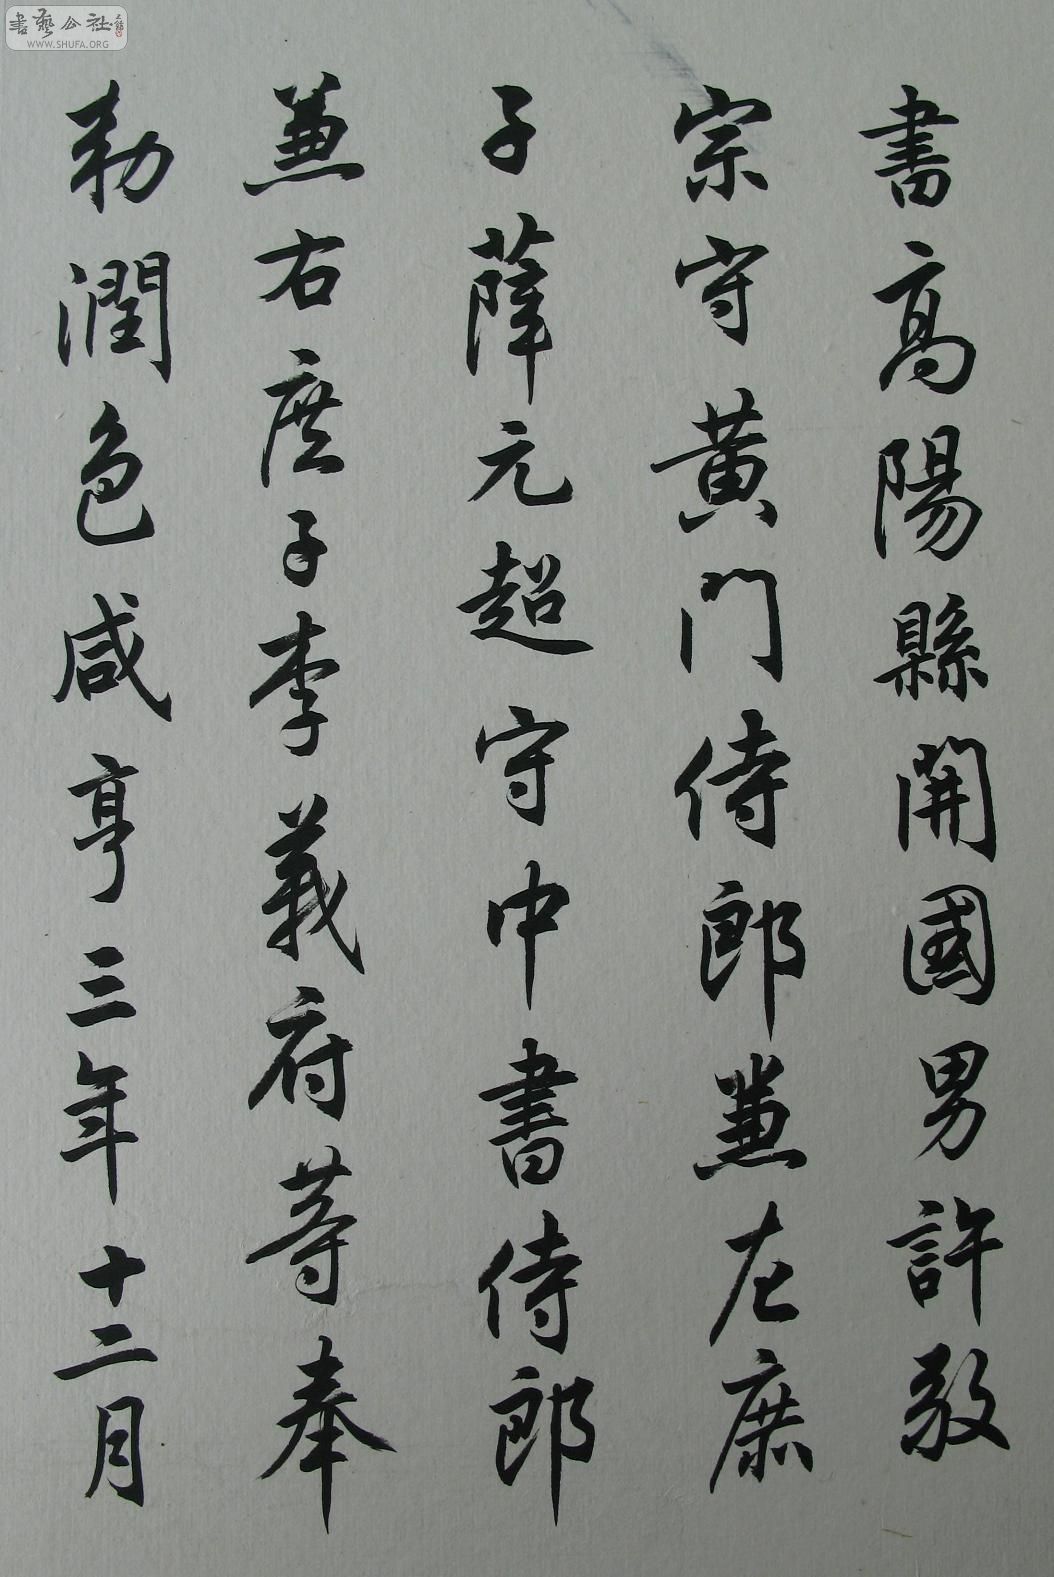 書藝公社
WWW.SHUFA.ORG
書高陽縣開國男許敬
宗守黃門侍郎兼左庶
子薛元超守中書侍郎
兼右庶子李義府等奉
勅潤色咸亨三年十二月